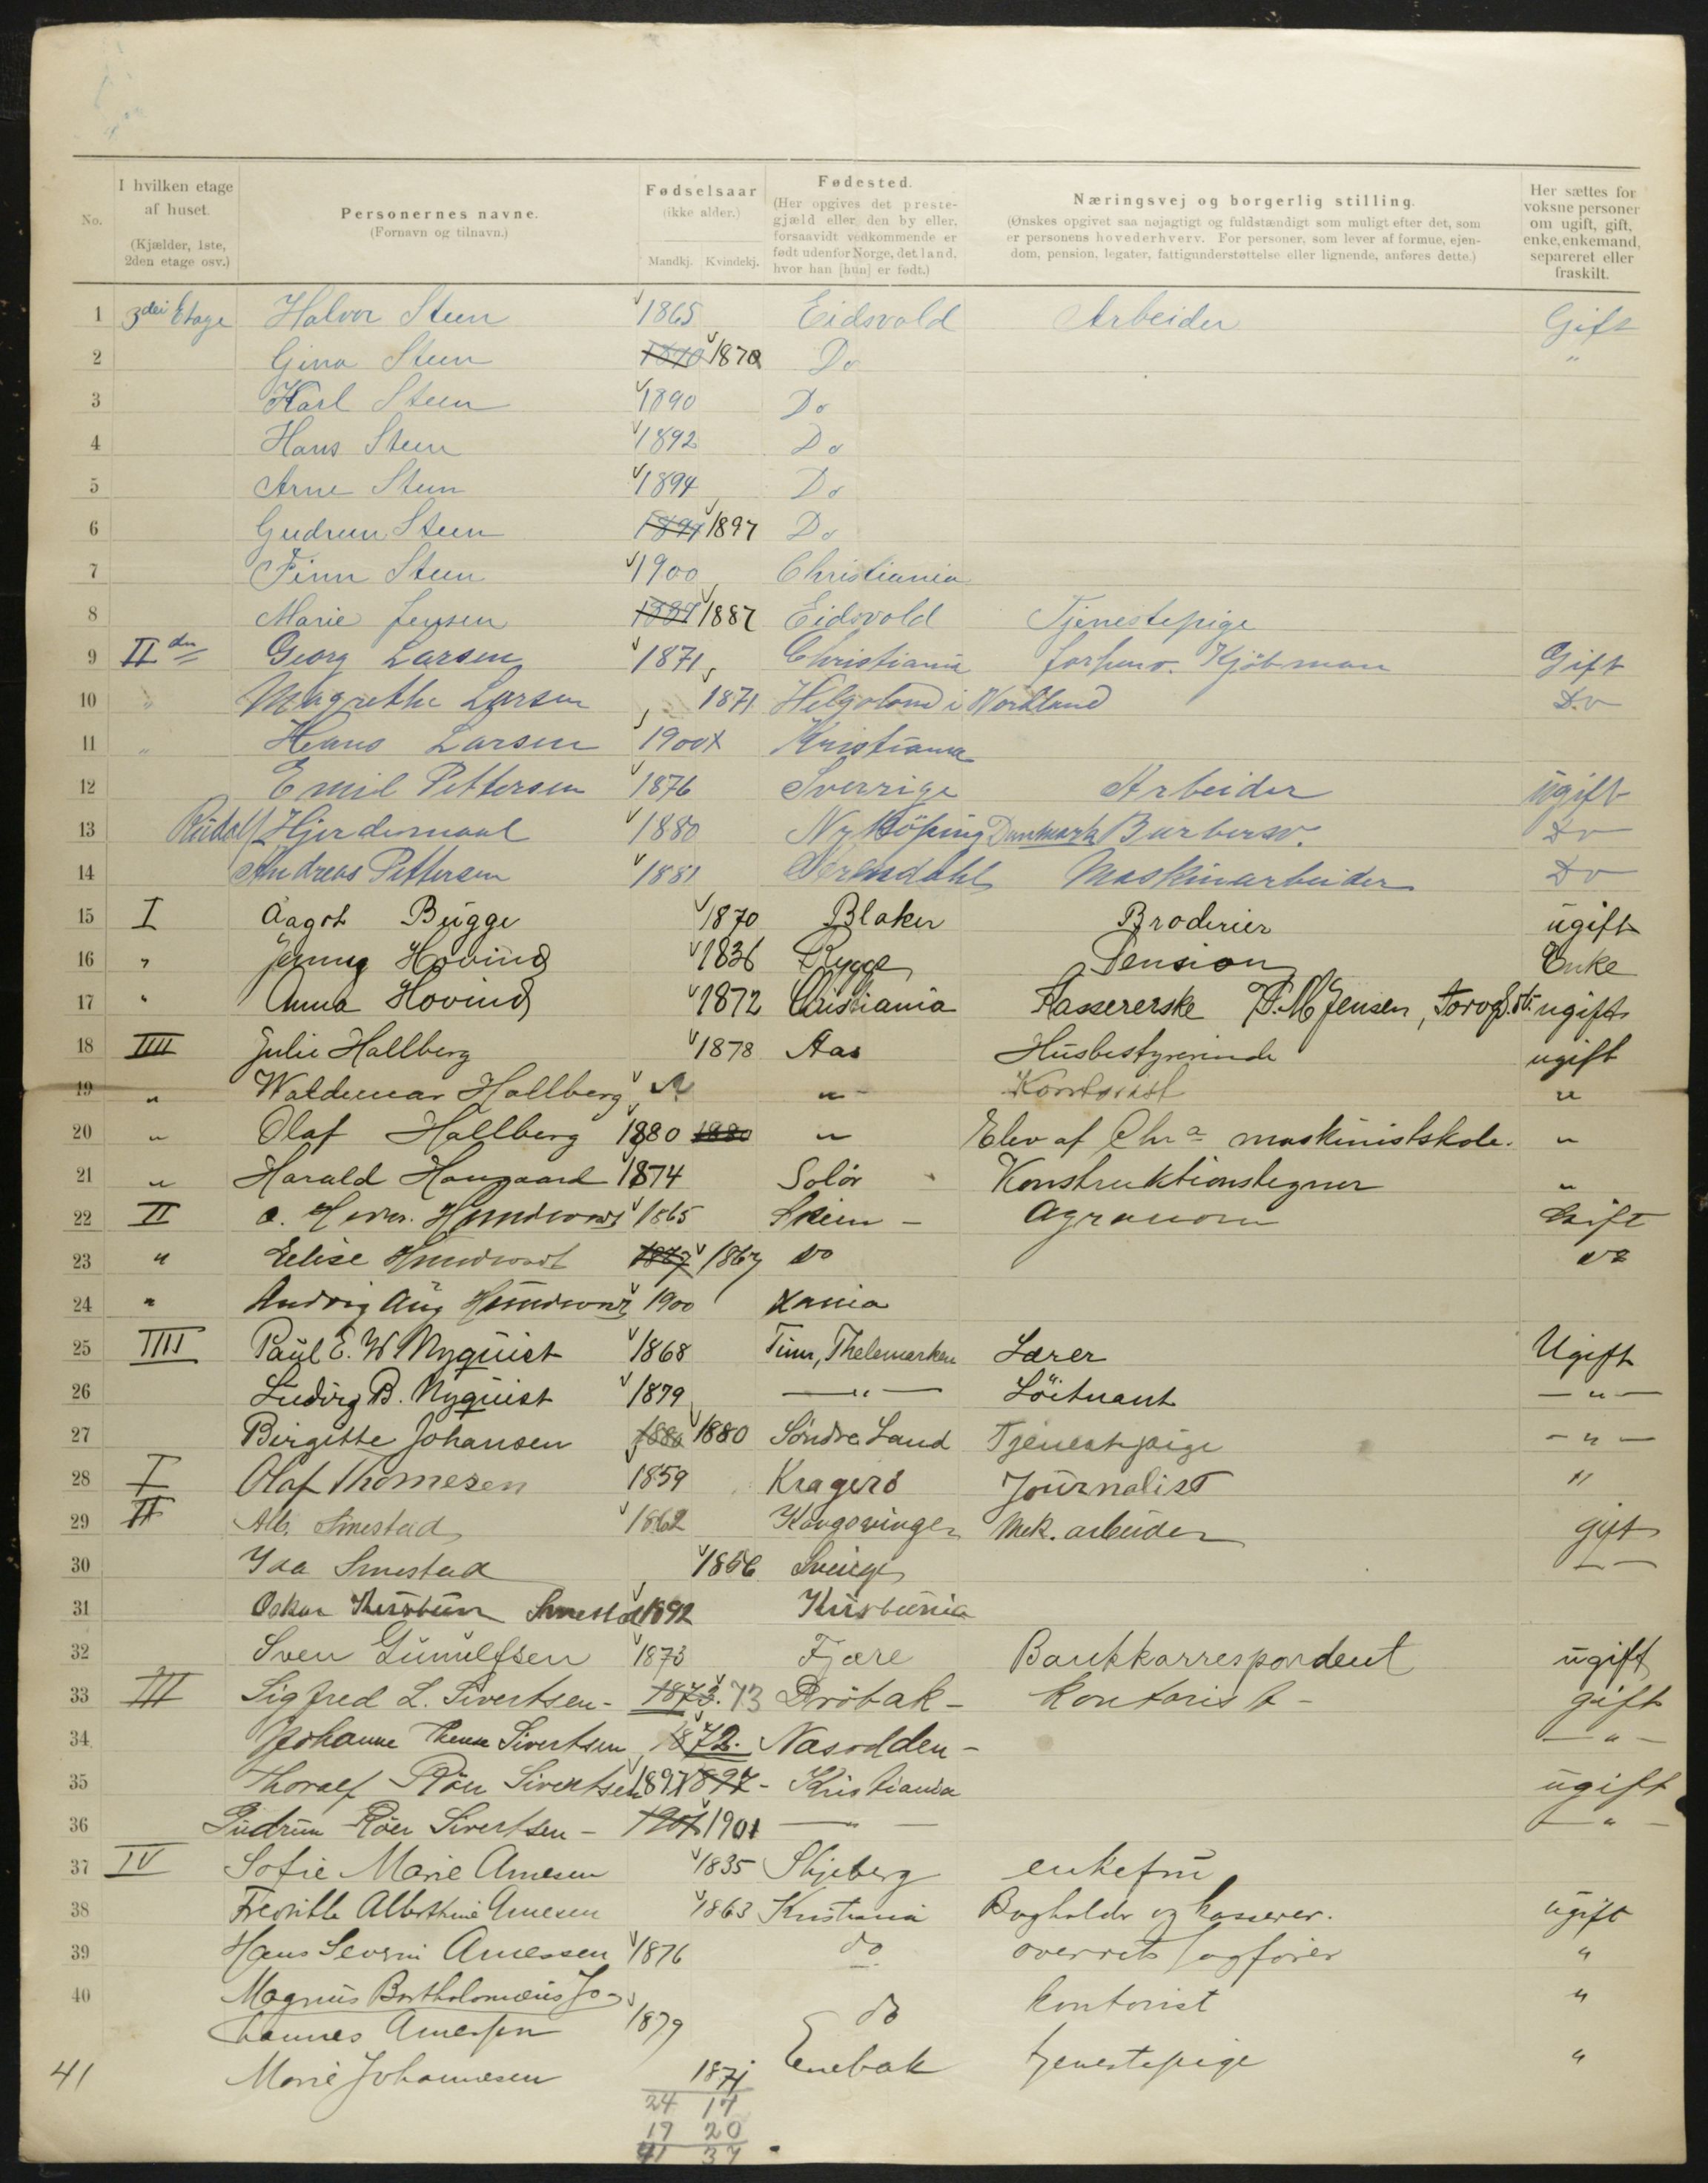 No.
I hvilken etage af huset. (Kjælder, 1ste, 2den etage osv.)
Personernes navne. (Fornavn og tilnavn.)
Fødselsaar (ikke alder.) Mandkj. Kvindekj.
Fødested. (Her opgives det prestegjæld eller den by eller, forsaavidt vedkommende er født udenfor Norge, det land, hvor han [hun] er født.)
Næringsvej og borgerlig stilling. (Ønskes opgivet saa nøjagtigt og fuldstændigt som muligt efter det, som er personens hovederhverv. For personer, som lever af formue, ejendom, pension, legater, fattigunderstøttelse eller lignende, anføres dette.)
Her sættes for voksne personer om ugift, gift, enke, enkemand, separeret eller fraskilt.
1 3die Etage Halvor Steen 1865 Eidsvold Arbeider Gift
2 Gina Steen 1870 1870 Do "
3 Karl Steen 1890 Do
4 Hans Steen 1892 Do
5 Arne Steen 1894 Do
6 Gudrun Steen 1897 1897 Do
7 Finn Steen 1900 Christiania
8 Marie Jensen 1887 1887 Eidsvold Tjenestepige
9 II den Georg Larsen 1871 Christiania forhenv. Kjöbman Gift
10 " Magrethe Larsen 1871 Helgoland i Nordland Do
11 " Hans Larsen 1900 x Kristiania
12 Emil Pettersen 1876 Sverrige Arbeider ugift
13 Rudolf Hjerdemaal 1880 Nyköping Danmark Barbersv. Do
14 Andreas Pettersen 1881 Maskinarbeider Do
15 I Aagot Bugge 1870 Blaker Broderier ugift
16 " Jenny Hovind 1836 Rygge Pension Enke
17 " Anna Hovind 1872 Christiania Kassererske P. M. Jensen, ugift
18 IIII Julie Hallberg 1878 Aas Husbestyrerinde ugift
19 " Waldemar Hallberg " Kontorist "
20 " Olaf Hallberg 1880 1880 " Elev af Chra maskinistskole. "
21 " Harald Haugaard 1874 Solör Konstruktionstegner "
22 II 1865 Skien - Agronom Gift
23 " Elise 1867 1867 do do
24 " Aug 1900 Kania
25 IIII Paul E. W. Nyquist 1868 Tinn, Thelemarken Lærer Ugift
26 Ludvig B. Nyquist 1879 — " — Löitnant — " —
27 Birgitte Johansen 1880 1880 Söndre Land Tjenestepige - " -
28 I Olaf Thomesen 1859 Kragerö Journalist "
29 II Alb. Smestad 1862 Kongsvinger Mek. arbeider gift
30 Ida Smestad 1856 Sverige — —
31 Oskar Kristian Smestad 1892 Kristiania
32 Sven Gunulfsen 1873 Fjære Bankkorrespondent ugift
33 III Sigfred L. Sivertsen - 1873. 73 Dröbak - kontorist - gift
34 Johanne Sivertsen 1872. Nasodden - — " —
35 Thoralf Röer Sivertsen 1897 1897 - Kristiania ugift
36 Gudrun Röer Sivertsen - 1901 1901 — " — — " —
37 IV Sofie Marie Arnesen 1835 Skjeberg enkefru
38 Fredrikke Albertine Arnesen 1863 Kristiania Bogholder og kasserer. ugift
39 Hans Severin Arnessen 1876 do overrets sagförer "
40 Magnus Bartholomæus Jo-
hannes Arnessen 1879 do kontorist "
41 Marie Johannesen 1871 Enebak tjenestepige "
24 17
17 20
41 37